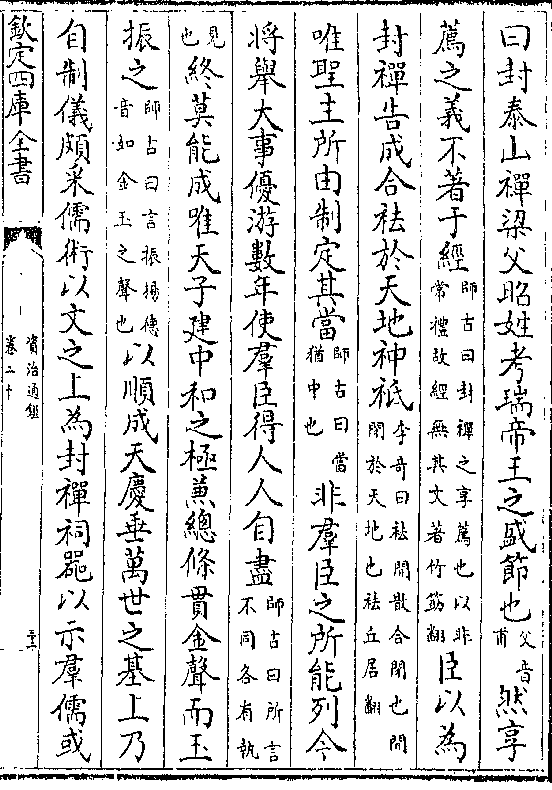 曰封泰山禪梁父昭姓考瑞帝王之盛節也父音甫然享
薦之義不著于經師古曰封禪之享薦也以非常禮故經無其文著竹筯翻臣以為
封禪告成合祛於天地神祇李奇曰祛開散合閉也開閉於天地也祛丘居翻
唯聖主所由制定其當師古曰當猶中也非羣臣之所能列今
將舉大事優游數年使羣臣得人人自盡師古曰所言不同各有執
見也終莫能成唯天子建中和之極兼總條貫金聲而玉
振之師古曰言振揚德音如金玉之聲也以順成天慶垂萬世之基上乃
自制儀頗采儒術以文之上為封禪祠器以示羣儒或
欽定四庫全書
資治通鑑
卷二十